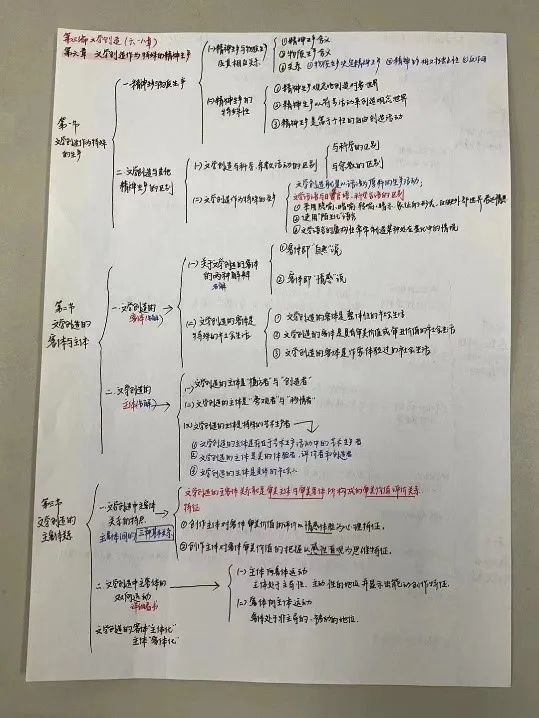 第三编 文学创造(六-八章)
第六章 文学创造作为特殊的精神生产
第一节
文学创造作为特殊的生产
一.精神生产与物质生产
(一)精神生产与物质生产及其相互关系
①精神生产含义
②物质生产含义
③关系
(二)精神生产的特殊性
①精神生产观念地创造对象世界
②精神生产以符号活动来创造观念世界
③精神生产是富于个性的自由创造活动
二.文学创造与其他精神生产的区别
(一)文学创造与科学、宗教活动的区别
与科学的区别
与宗教的区别
(二)文学创造作为特殊的生产
文学创造就是以话语为原料的生产活动;
文学话语与日常言语、科学言语的区别
②运用"陌生化"语言
第二节
文学创造的客体与主体
一.文学创造的客体
(一)关于文学创造的客体的两种解释
①客体即"自然"说
②客体即"情感"说
(二)文学创造的客体是特殊的社会生活
①文学创造的客体是整体性的社会生活
②文学创造的客体是具有审美价值或审美价值的社会生活
③文学创造的客体是作家体验过的社会生活
二.文学创造的主体
(一)文学创造的主体是"模仿者"与"创造者"
(二)文学创造的主体是"旁观者"与"移情者"
(三)文学创造的主体是特殊的艺术生产者
①文学创造的主体是处于艺术生产活动中的艺术生产者
②文学创造的主体是美的体验者、评价者和创造者
③文学创造的主体是具体的社会人
第三节
文学创造的主客体关系
一.文学创造中主客体关系的特点
主客体间的三种基本关系
文学创造的主客体关系就是审美主体与审美客体所构成的审美价值评价关系.
特征
①创作主体对客体审美价值的评价以情感体验为心理特征.
②创作主体对客体审美价值的把握以感性直观为思维特征.
二.文学创造中主客体的双向运动
文学创造的客体"主体化"
主体"客体化"
(一)主体向客体运动
主体处于主导性、主动性的地位并显示出能动创作特征.
(二)客体向主体运动
客体处于非主导的、被动的地位.